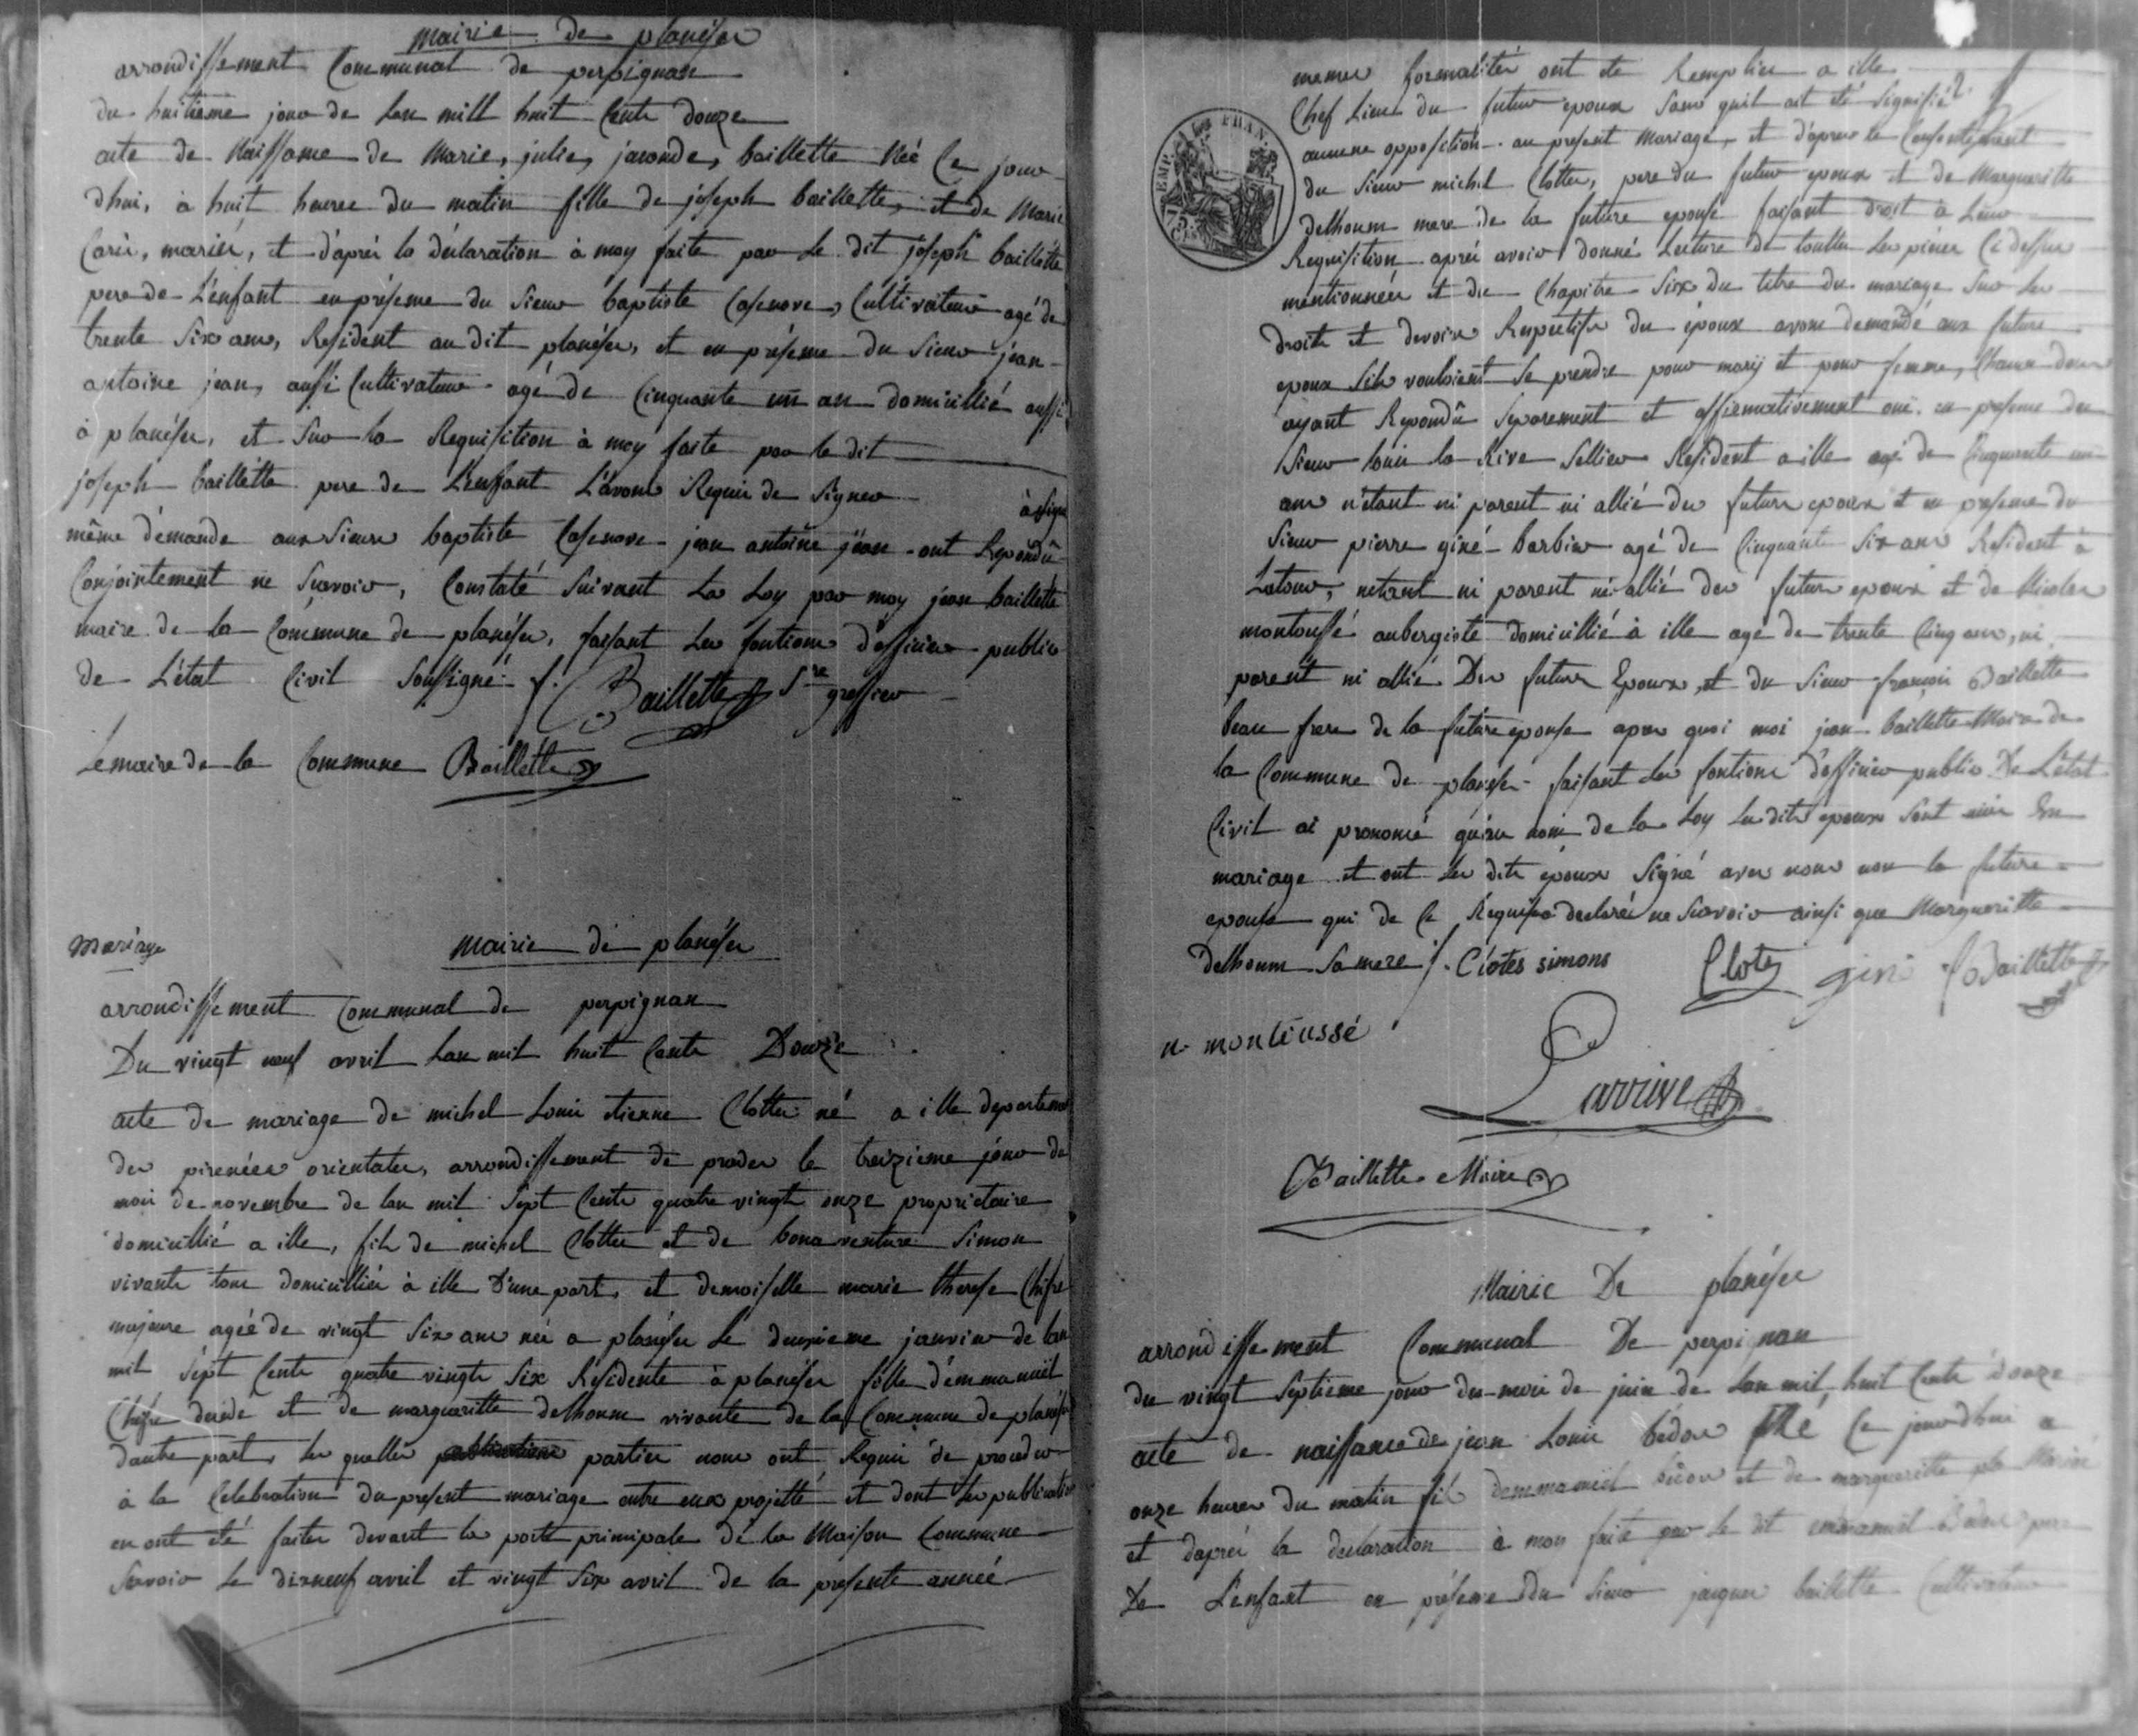 mairie de planéses
arrondissement Communal de perpignan
du huitieme jour de Lan mill huit Cents douze
acte de Naissance de Marie, julie, jaconde, baillette Néé Ce jour
dhui, à huit heures du matin fille de joseph baillette, et de Marie
mariés, et d'aprés la déclaration à moy faite par le dit joseph baillette
pere de L'enfant en présense du Sieur baptiste Casenove, Cultivateur agé de
trente Six ans, Résident au dit planéses, et en présense du Sieur jean
antoine jean, aussi Cultivateur agé de Cinquante un an domicillié aussi
à planéses, et Sur la Requisition à moy faite par le dit
joseph baillette pere de L'enfant L'avons Requis de Signer à signé
même démande aux Sieurs baptiste Casenove jean antoine jean ont Repondû
Conjointement ne Scavoir, Constaté Suivant La Loy par moy jean baillette
maire de la Commune de planéses, faisant les fontions d'officier public
de L'état Civil Soussigné f. Baillette Sre greffier
Le maire de la Commune Baillétte
Mariage
mairie de planéses
arrondissement Communal de perpignan
Du vingt neuf avril Lan mil huit Cents Douze
acte de mariage de michel Louis etienne Clottes né a ille departement
des pirenées orientales, arrondissement de prades le treizieme jour de
mois de novembre de lan mil Sept Cents quatre vingt onze proprietaire
domicillié a ille, fils de michel Clottes et de bonaventure Simon
vivants tous domicilliés à ille D'une part, et demoiselle marie therese Chifre
majeure agéé de vingt Six ans née a planéses Le deuxieme janvier de lan
mil Sept Cents quatre vingts Six Résidente à planéses fille d'émmanuël
Chifre décédé et de margueritte delhoum vivante de la Commune de planéses
dautre part, les quelles parties nous ont Requis de proceder
à la Celebration du present mariage entre eux projetté et dont les publications
en ont été faites devant la porte principale de la Maison Commune
Scavoir Le dixneuf avril et vingt Six avril de la presente année
memes formalités ont été Remplies a ille
Chef Lieu du futur epoux Sans quil ait été Signifié
aucune opposition au present Mariage, et d'apres le Consentement
du Sieur michel Clottes, pere du futur epoux et de Margueritte
delhoum mere de la future epouse faisant droit à Leur
Requisition aprés avoir donné Lecture de touttes Les piéces Ci dessus
mentionnées et du Chapitre Six du titre du mariage Sur Les
droits et devoirs Respectifs des époux avons demandé aux futurs
epoux Sils vouloient Se prendre pour mary et pour femme, Chacun deux
ayant Repondû Separement et affirmativement oui en presense du
Sieur Louis la Rive Sellier Résident a ille agé de Cinquante un
ans n'étant ni parent ni allié des futurs epoux et en presense du
Sieur pierre giné barbier agé de Cinquante Six ans Résident à
Latour, nétant ni parent ni allié des futurs epoux et de Nicolas
montoussé aubergiste domicillié à ille agé de trente Cinq ans, ni
parent ni allié Des futurs Epoux, et du Sieur françois Baillette
beau frere de la future epouse apres quoi moi jean baillette Maire de
la Commune de planéses faisant les fontions d'officier public De L'état
Civil ai prononcé qu'au nom de la Loy Lesdits epoux Sont unis En
mariage et ont Les dits époux Signé avec nous non la future
epouse qui de Ce Requise a declaré ne Scavoir ainsi que Margueritte
delhoum Sa mere f. Clotes simons Clotes giné f Baillette
n. montoussé
Larrive
Baillette Maire
EMP. FRAN.
75
Mairie De planéses
arrondissement Communal De perpignan
du vingt Septieme jour du mois de juin de Lan mil huit Cents douze
acte de naissance de jean Louis Né Ce jourdhui a
onze heures du matin fils demmanuël et de margueritte
et daprés la declaration à moi faite par le dit emmanuel pere
De L'enfant en présense du Sieur jacques baillette Cultivateur